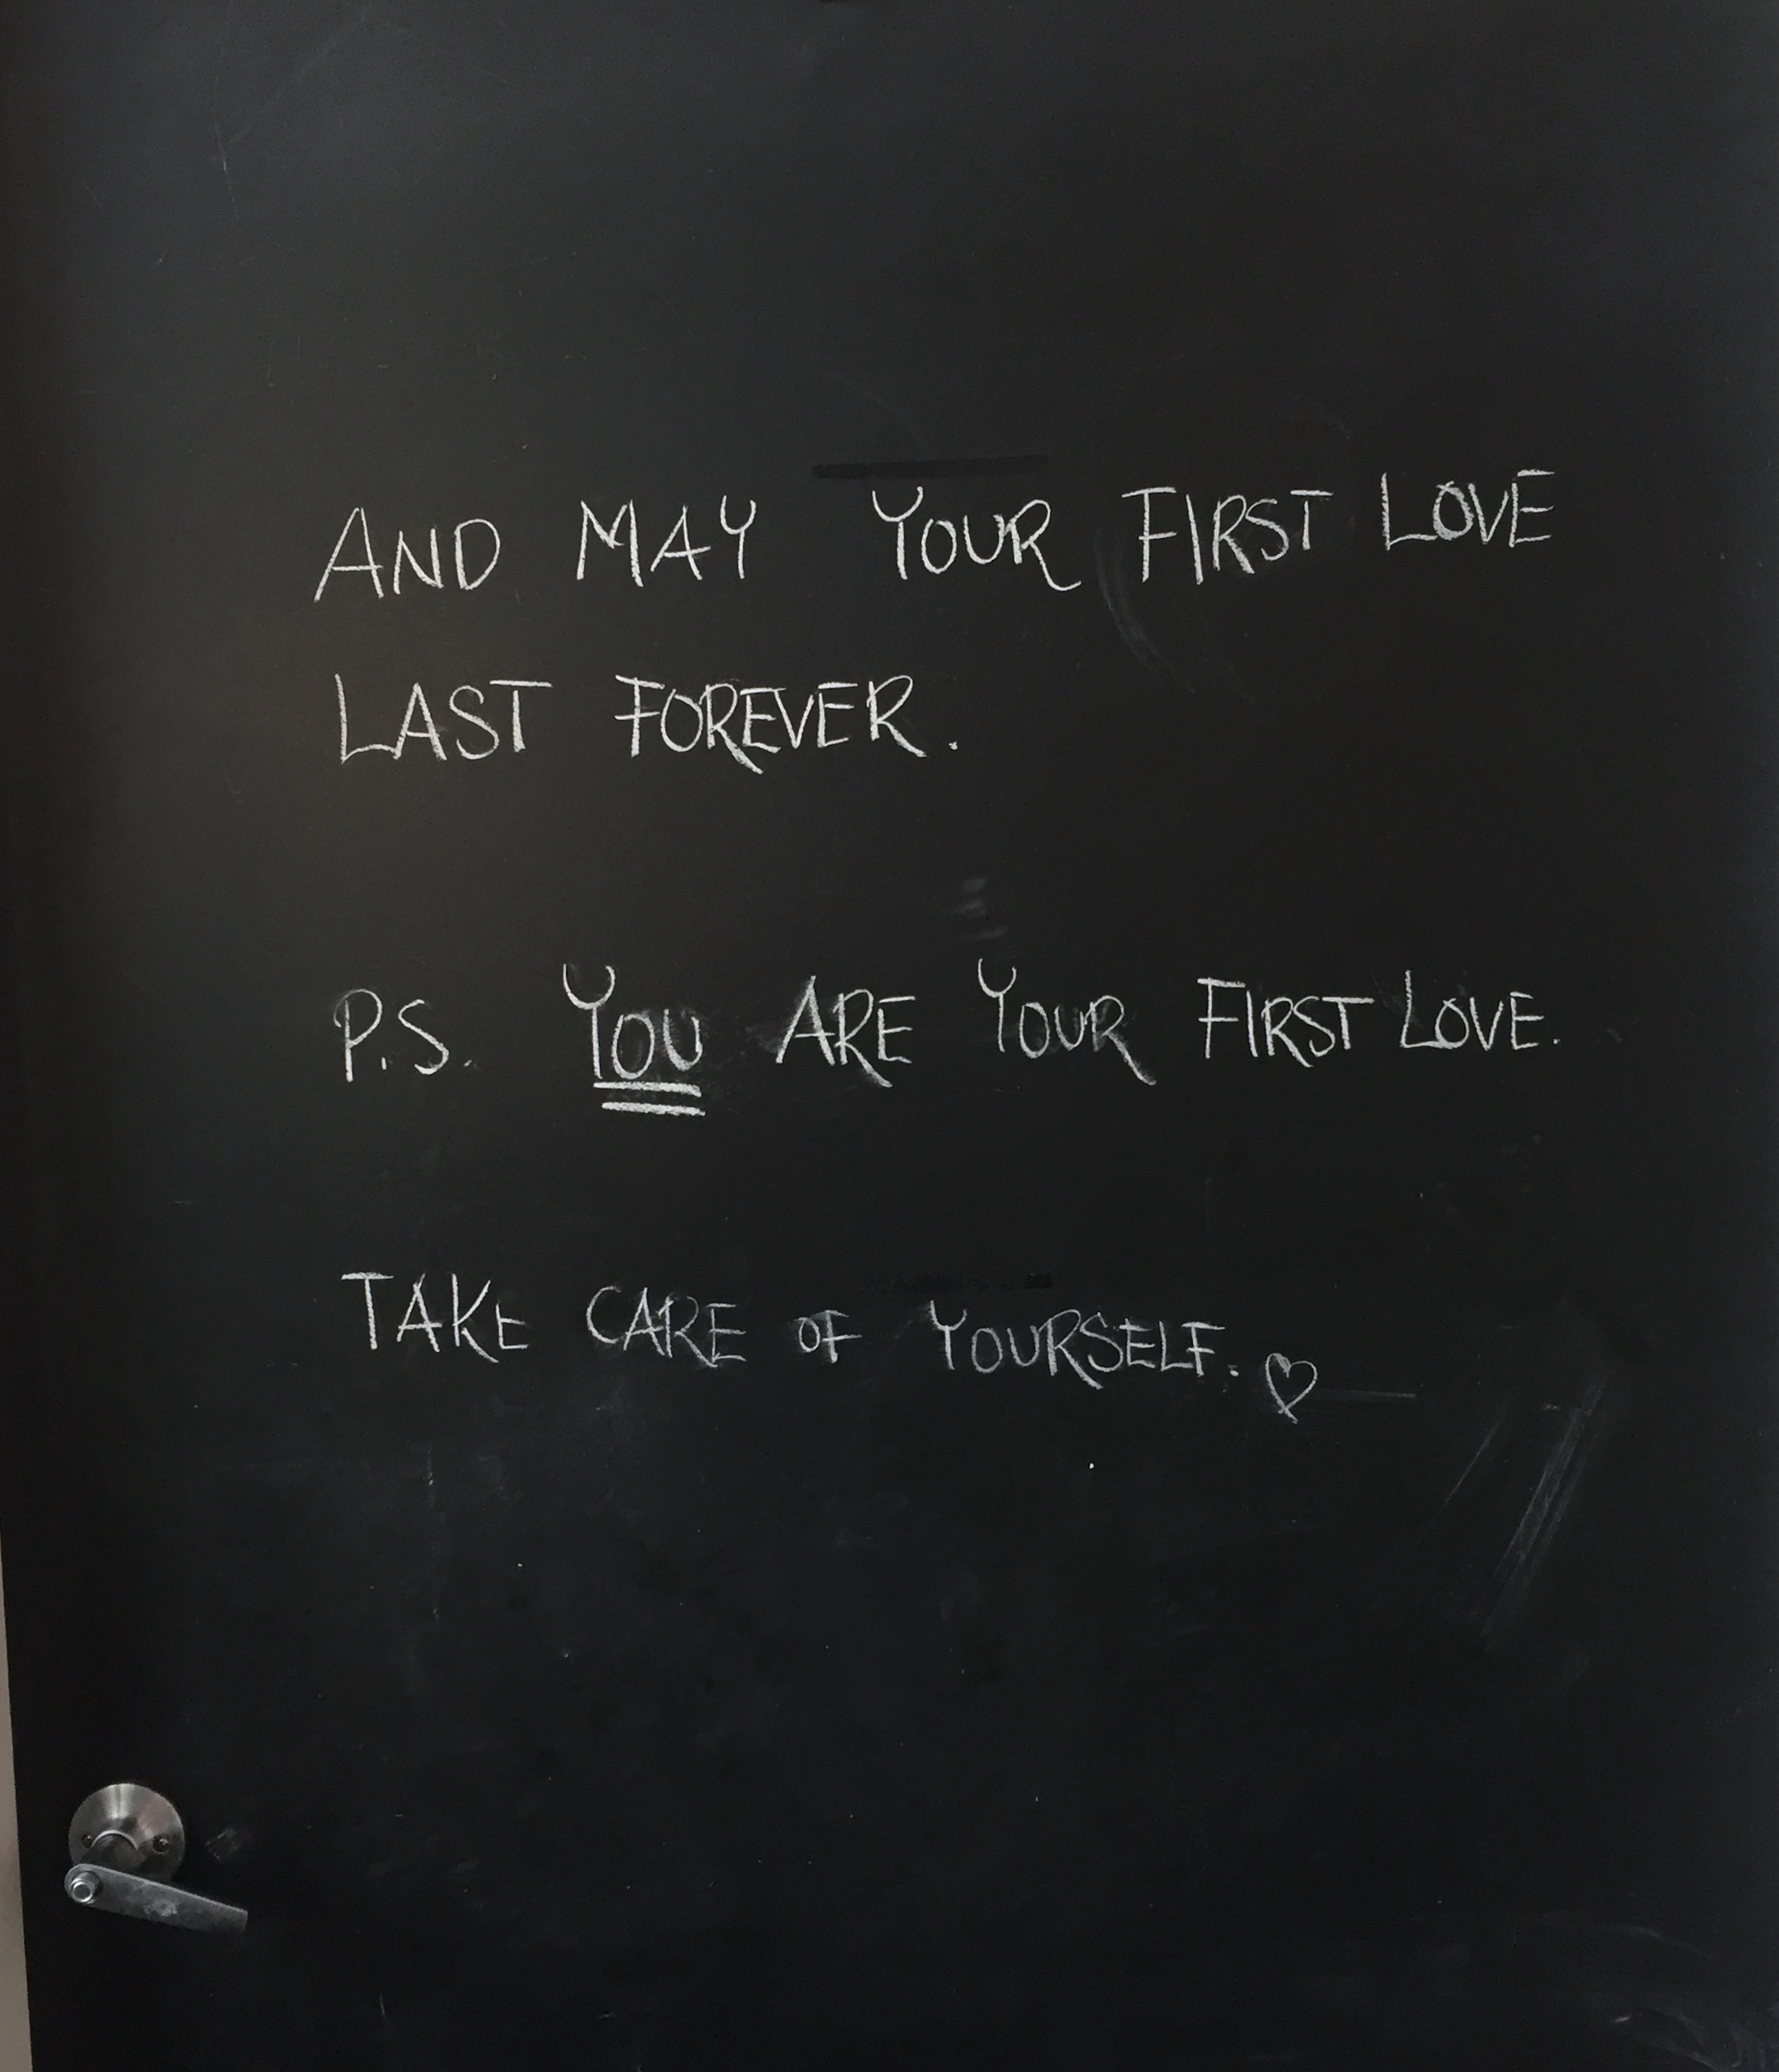 AND MAY YOUR FIRST LOVE
LAST FOREVER.
P.S. YOU ARE YOUR FIRST LOVE.
TAKE CARE OF YOURSELF. ♡